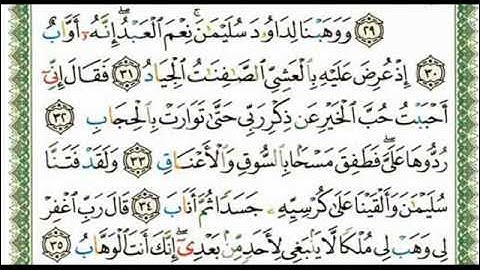 ٢٩ وَوَهَبْنَا لِدَاوُۥدَ سُلَيْمَٰنَ ۚ نِعْمَ ٱلْعَبْدُ ۖ إِنَّهُۥٓ أَوَّابٌ
٣٠ إِذْ عُرِضَ عَلَيْهِ بِٱلْعَشِىِّ ٱلصَّٰفِنَٰتُ ٱلْجِيَادُ ٣١ فَقَالَ إِنِّىٓ
أَحْبَبْتُ حُبَّ ٱلْخَيْرِ عَن ذِكْرِ رَبِّى حَتَّىٰ تَوَارَتْ بِٱلْحِجَابِ ٣٢
رُدُّوهَا عَلَىَّ ۖ فَطَفِقَ مَسْحًۢا بِٱلسُّوقِ وَٱلْأَعْنَاقِ ٣٣ وَلَقَدْ فَتَنَّا
سُلَيْمَٰنَ وَأَلْقَيْنَا عَلَىٰ كُرْسِيِّهِۦ جَسَدًا ثُمَّ أَنَابَ ٣٤ قَالَ رَبِّ ٱغْفِرْ
لِى وَهَبْ لِى مُلْكًا لَّا يَنۢبَغِى لِأَحَدٍ مِّنۢ بَعْدِىٓ ۖ إِنَّكَ أَنتَ ٱلْوَهَّابُ ٣٥